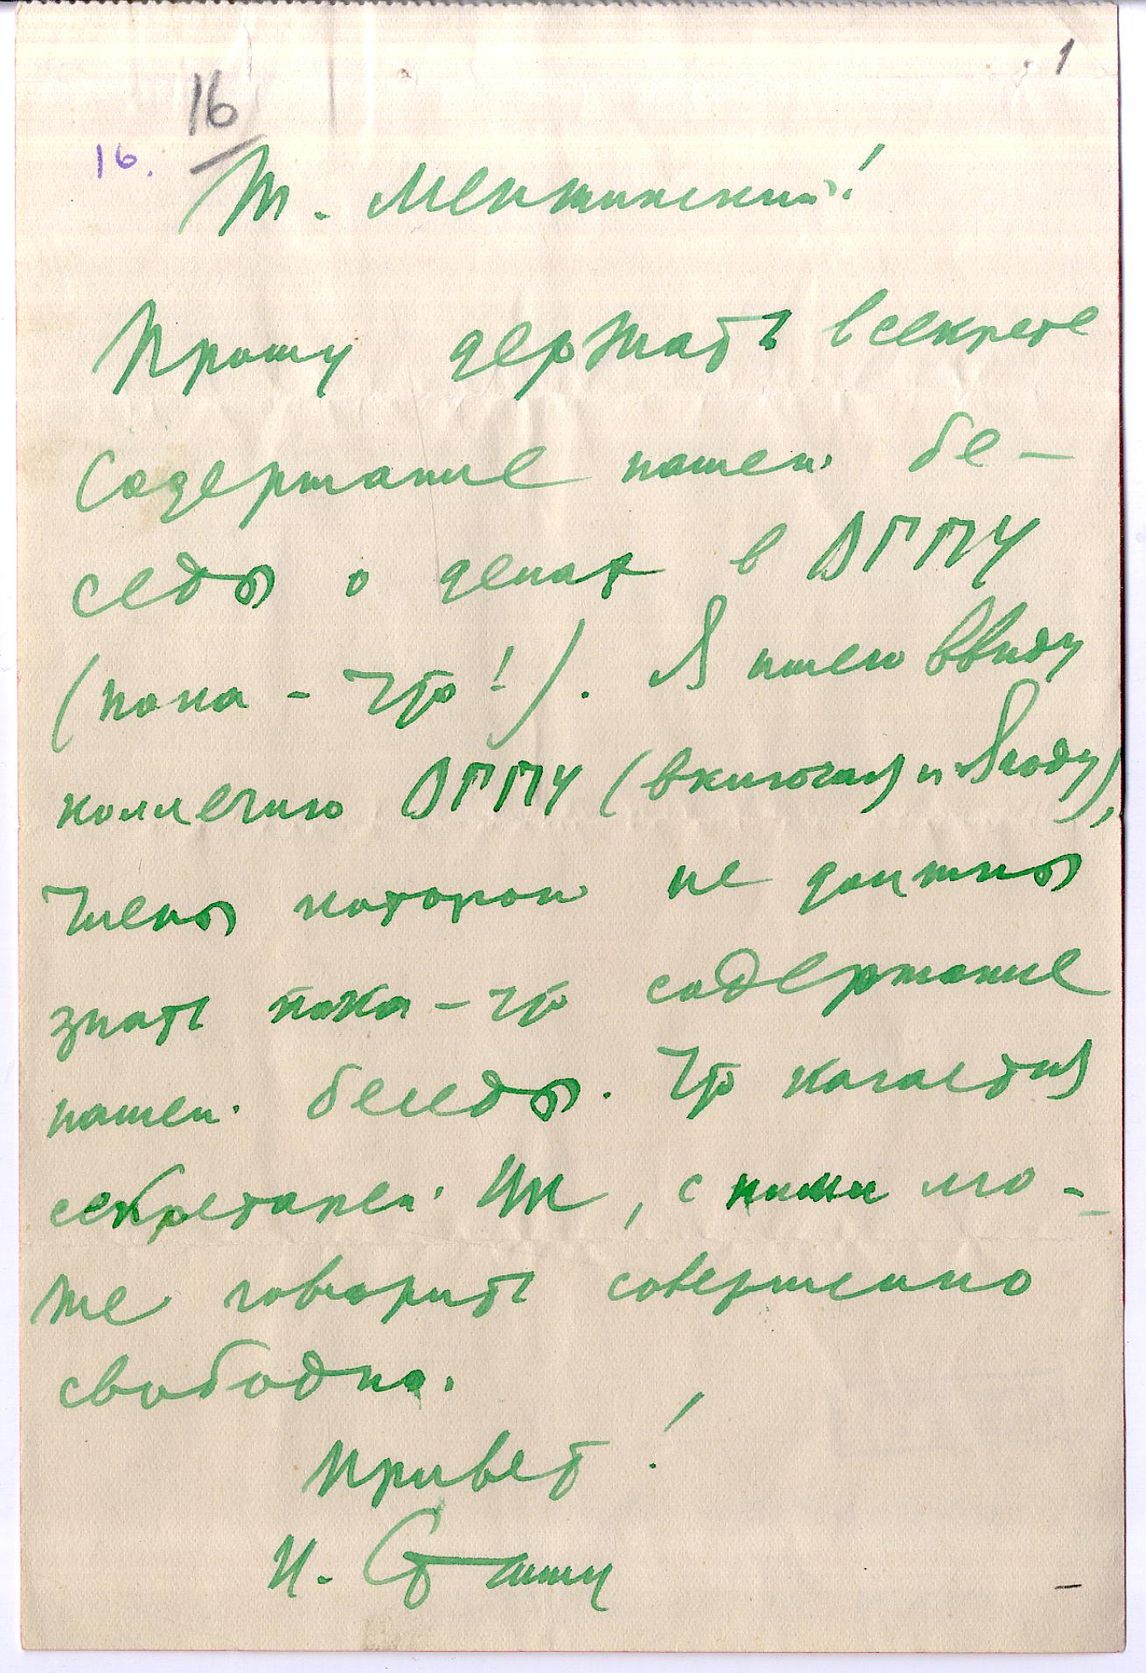 1
16
16.
Т. Менжинский!
Прошу держать в секрете
содержание нашей бе-
седы о делах в ОГПУ
(пока-что!). Я имею ввиду
коллегию ОГПУ (включая и Ягоду),
члены которой не должны
знать пока-что содержание
нашей беседы. Что касается
секретарей ЦК, с ними мо-
же говорить совершенно
свободно.
Привет!
И. Сталин